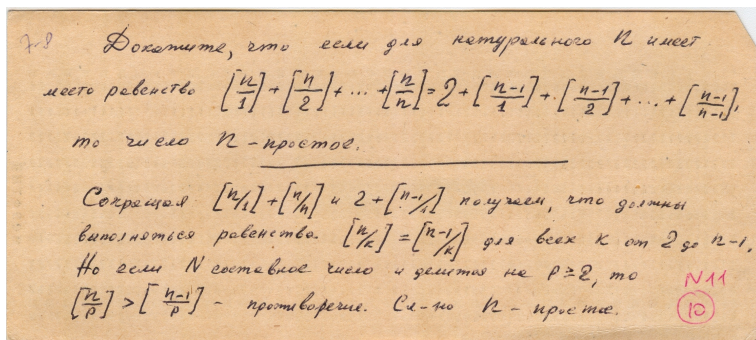 7-8
Докажите, что если для натурального n имеет
место равенство [n/1] + [n/2] + ... + [n/n] = 2 + [n-1/1] + [n-1/2] + ... + [n-1/n-1],
то число n - простое.
Сокращая [n/1] + [n/n] и 2 + [n-1/1] получаем, что должны
выполняться равенства [n/k] = [n-1/k] для всех k от 2 до n-1.
Но если N составное число и делится на p ≥ 2, то
[n/p] > [n-1/p] - противоречие. Сл-но n - простое.
N11
10